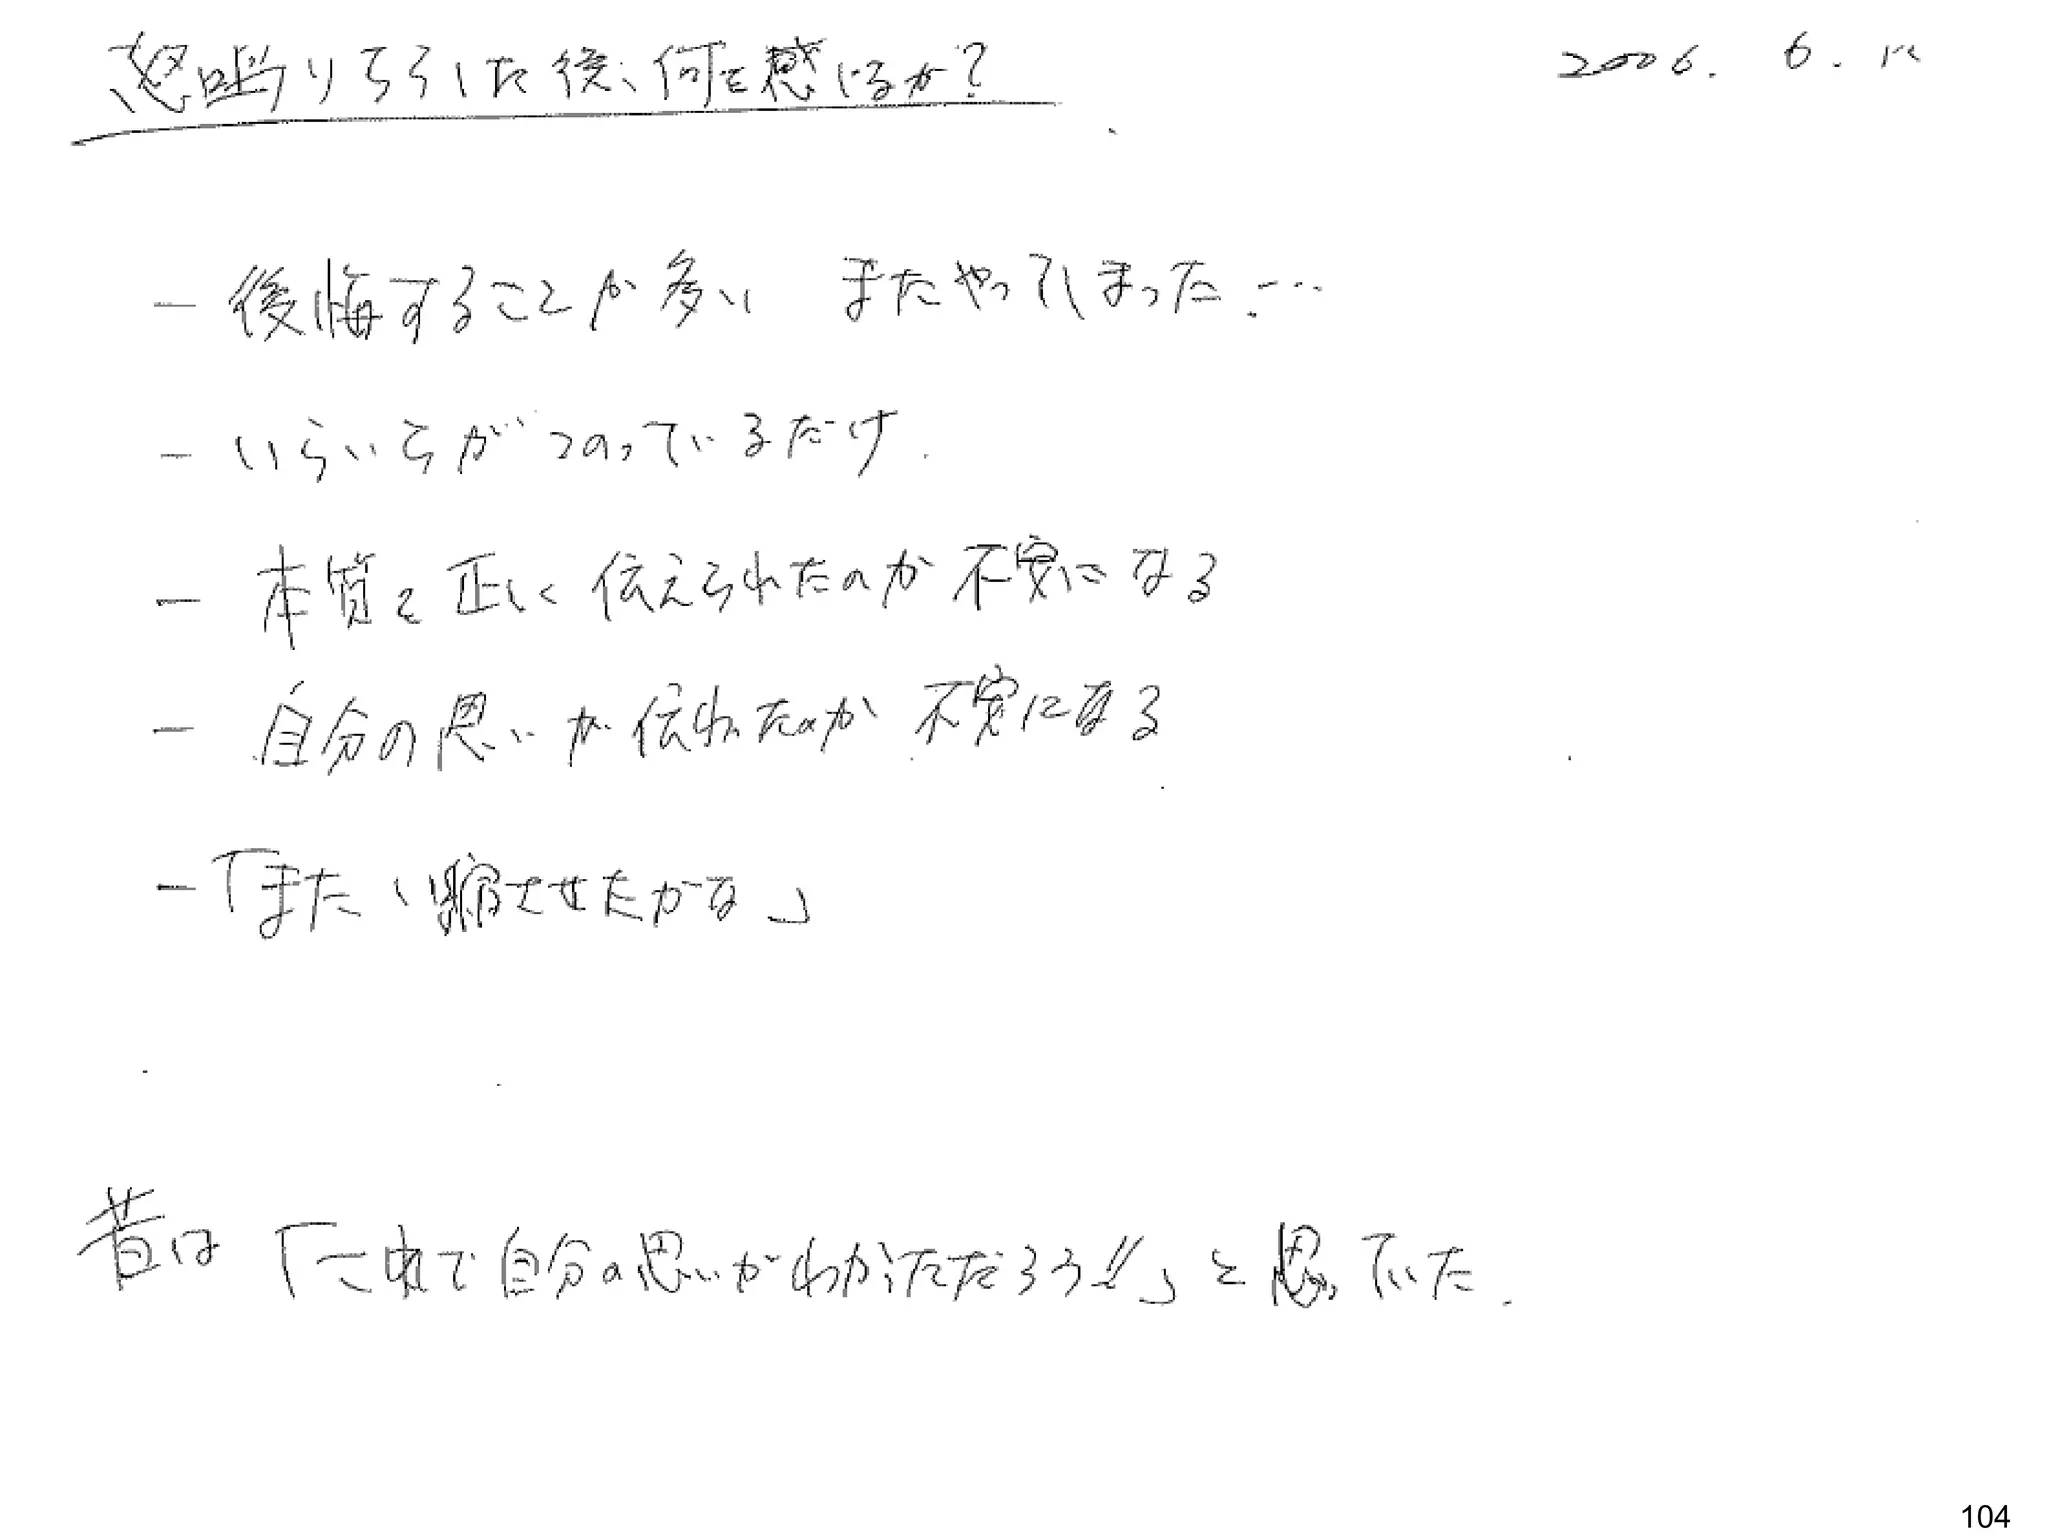 怒鳴りちらした後、何を感じるか? 2006. 6. 12
- 後悔することが多い またやってしまった…
- いらいらがつのっているだけ.
- 本質を正しく伝えられたのか不安になる
- 自分の思いが伝わったのか不安になる
- 「また、い縮させたかな」
昔は「これで自分の思いがわかっただろう!!」と思っていた.
104